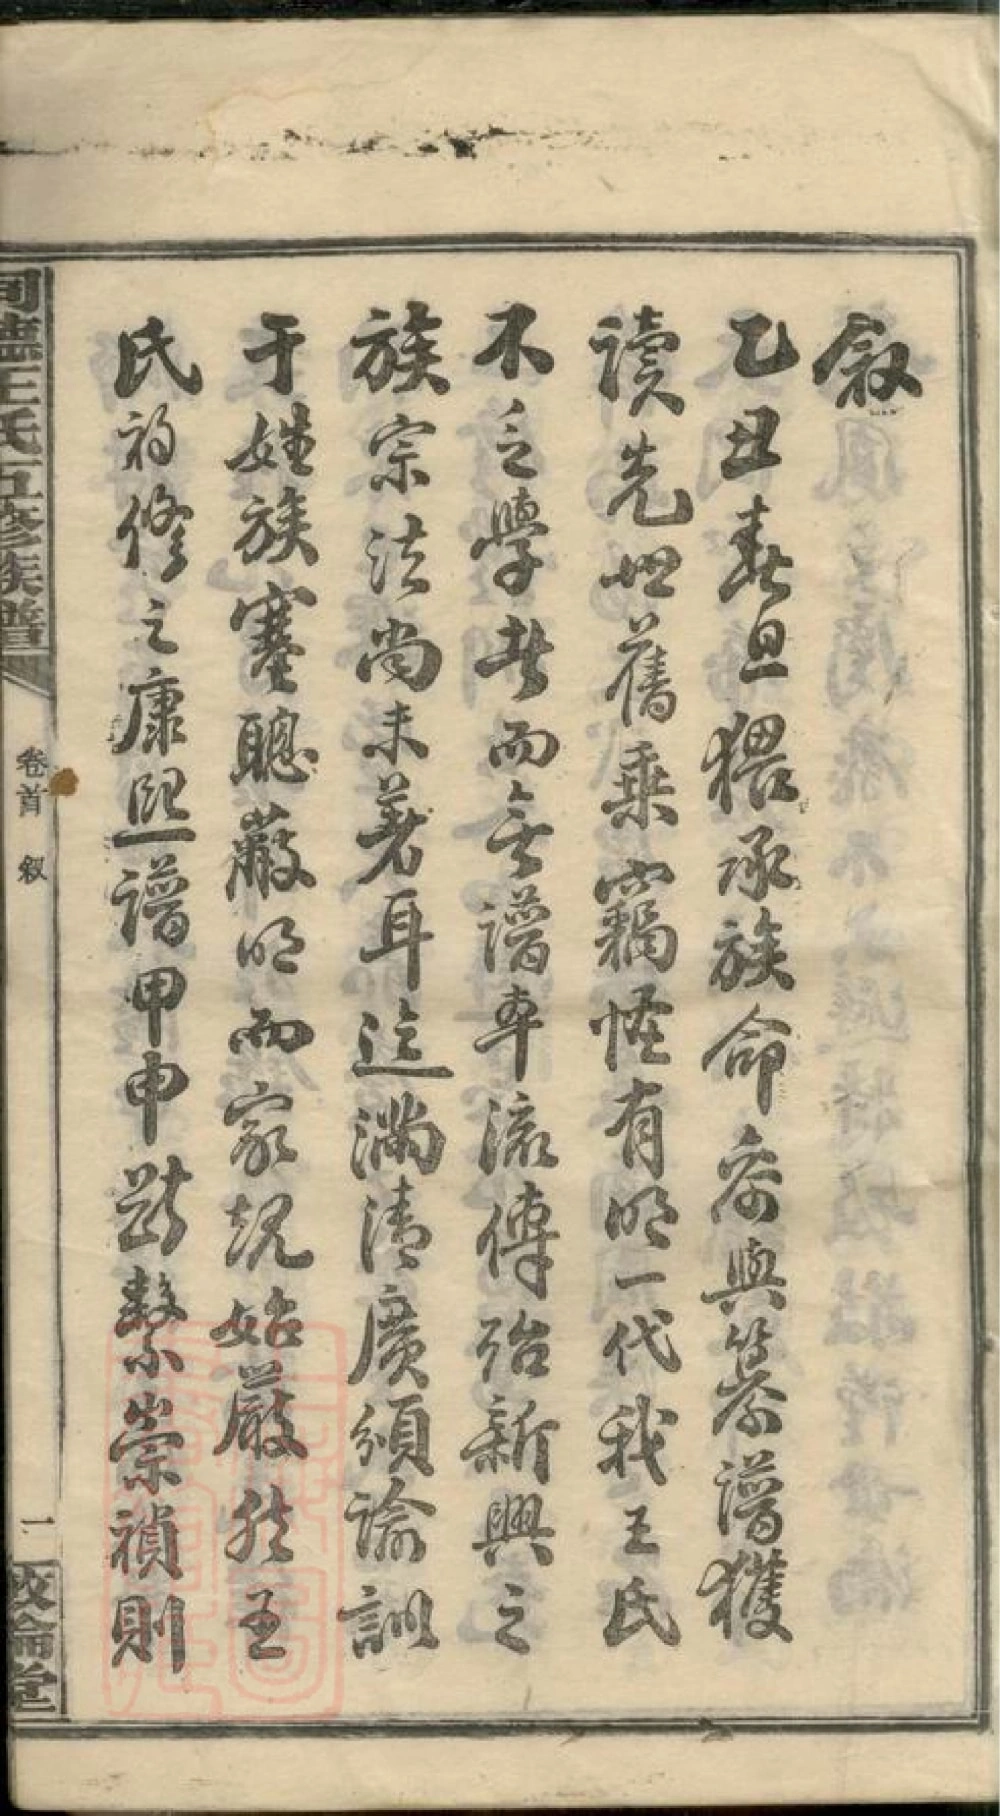 敘
乙丑春旦猥承族命忝與篡譜獲
讀先世舊乘竊怪有明一代我王氏
不乏學者而無譜牽流傳殆新興之
族宗法尚未著耳迄滿清廣頒諭訓
于姓族塞聰蔽明而家規始嚴然王
氏初修之康熙譜甲申斷繫崇禎則
王氏五修族譜
卷首 敘
一
敘倫堂